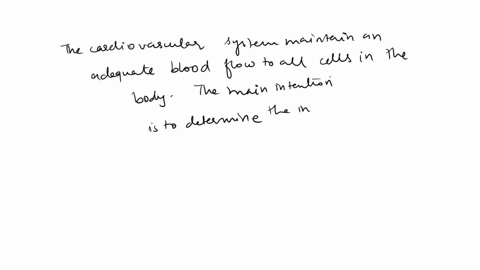 The cardiovascular system maintain an
adequate blood flow to all cells in the
body. The main intention
is to determine the in